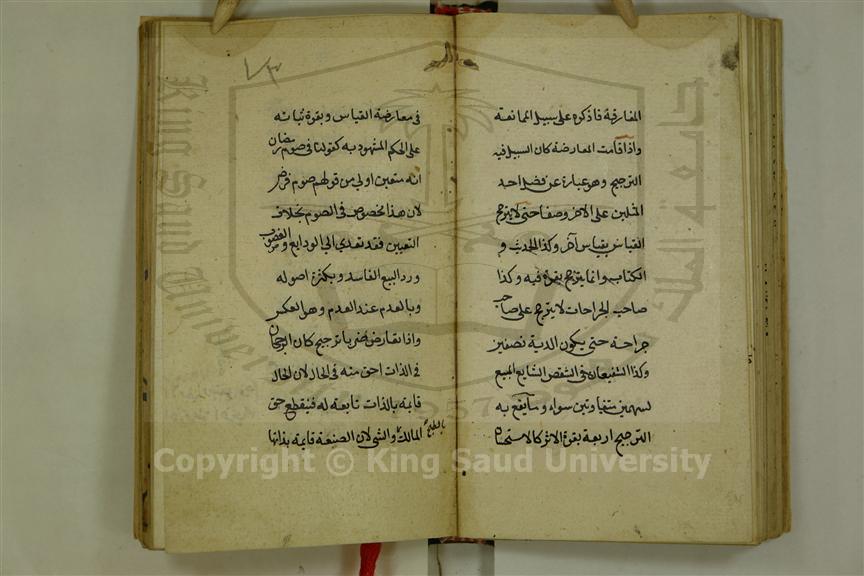 المفارقة فاذكره على سبيل الممانعة
واذا قامت المعارضة كان السبيل فيه
الترجيح وهو عبارة عن فضل احد
المثلين على الاخر وصفا حتى لا يترجح
القياس بقياس آخر وكذا الحديث و
الكتاب وانما يترجح بقوة فيه وكذا
صاحب الجراحات لا يترجح على صاحب
جراحة حتى يكون الدية نصفين
وكذا الشفيعان في الشقص الشايع المبيع
بسهمين متفاوتين سواء وما يقع به
الترجيح اربعة بقوة الاثر كالاستحسان
في معارضة القياس وبقوة ثباته
على الحكم المشهود به كقولنا في صوم رمضان
انه متعين اولى من قولهم صوم فرض
لان هذا مخصوص في الصوم بخلاف
التعيين فقد تعدى الى الودايع والغصوب
ورد البيع الفاسد وبكثرة اصوله
وبالعدم عند العدم وهو العكس
واذا تعارض ضربا ترجيح كان الرجحان
في الذات احق منه في الحال لان الحال
قايمة بالذات تابعة له فينقطع حق
المالك بالطبخ والشي لان الصنعة قايمة بذاتها
١٧٣
Copyright © King Saud University
King Saud University
جامعة الملك
1957